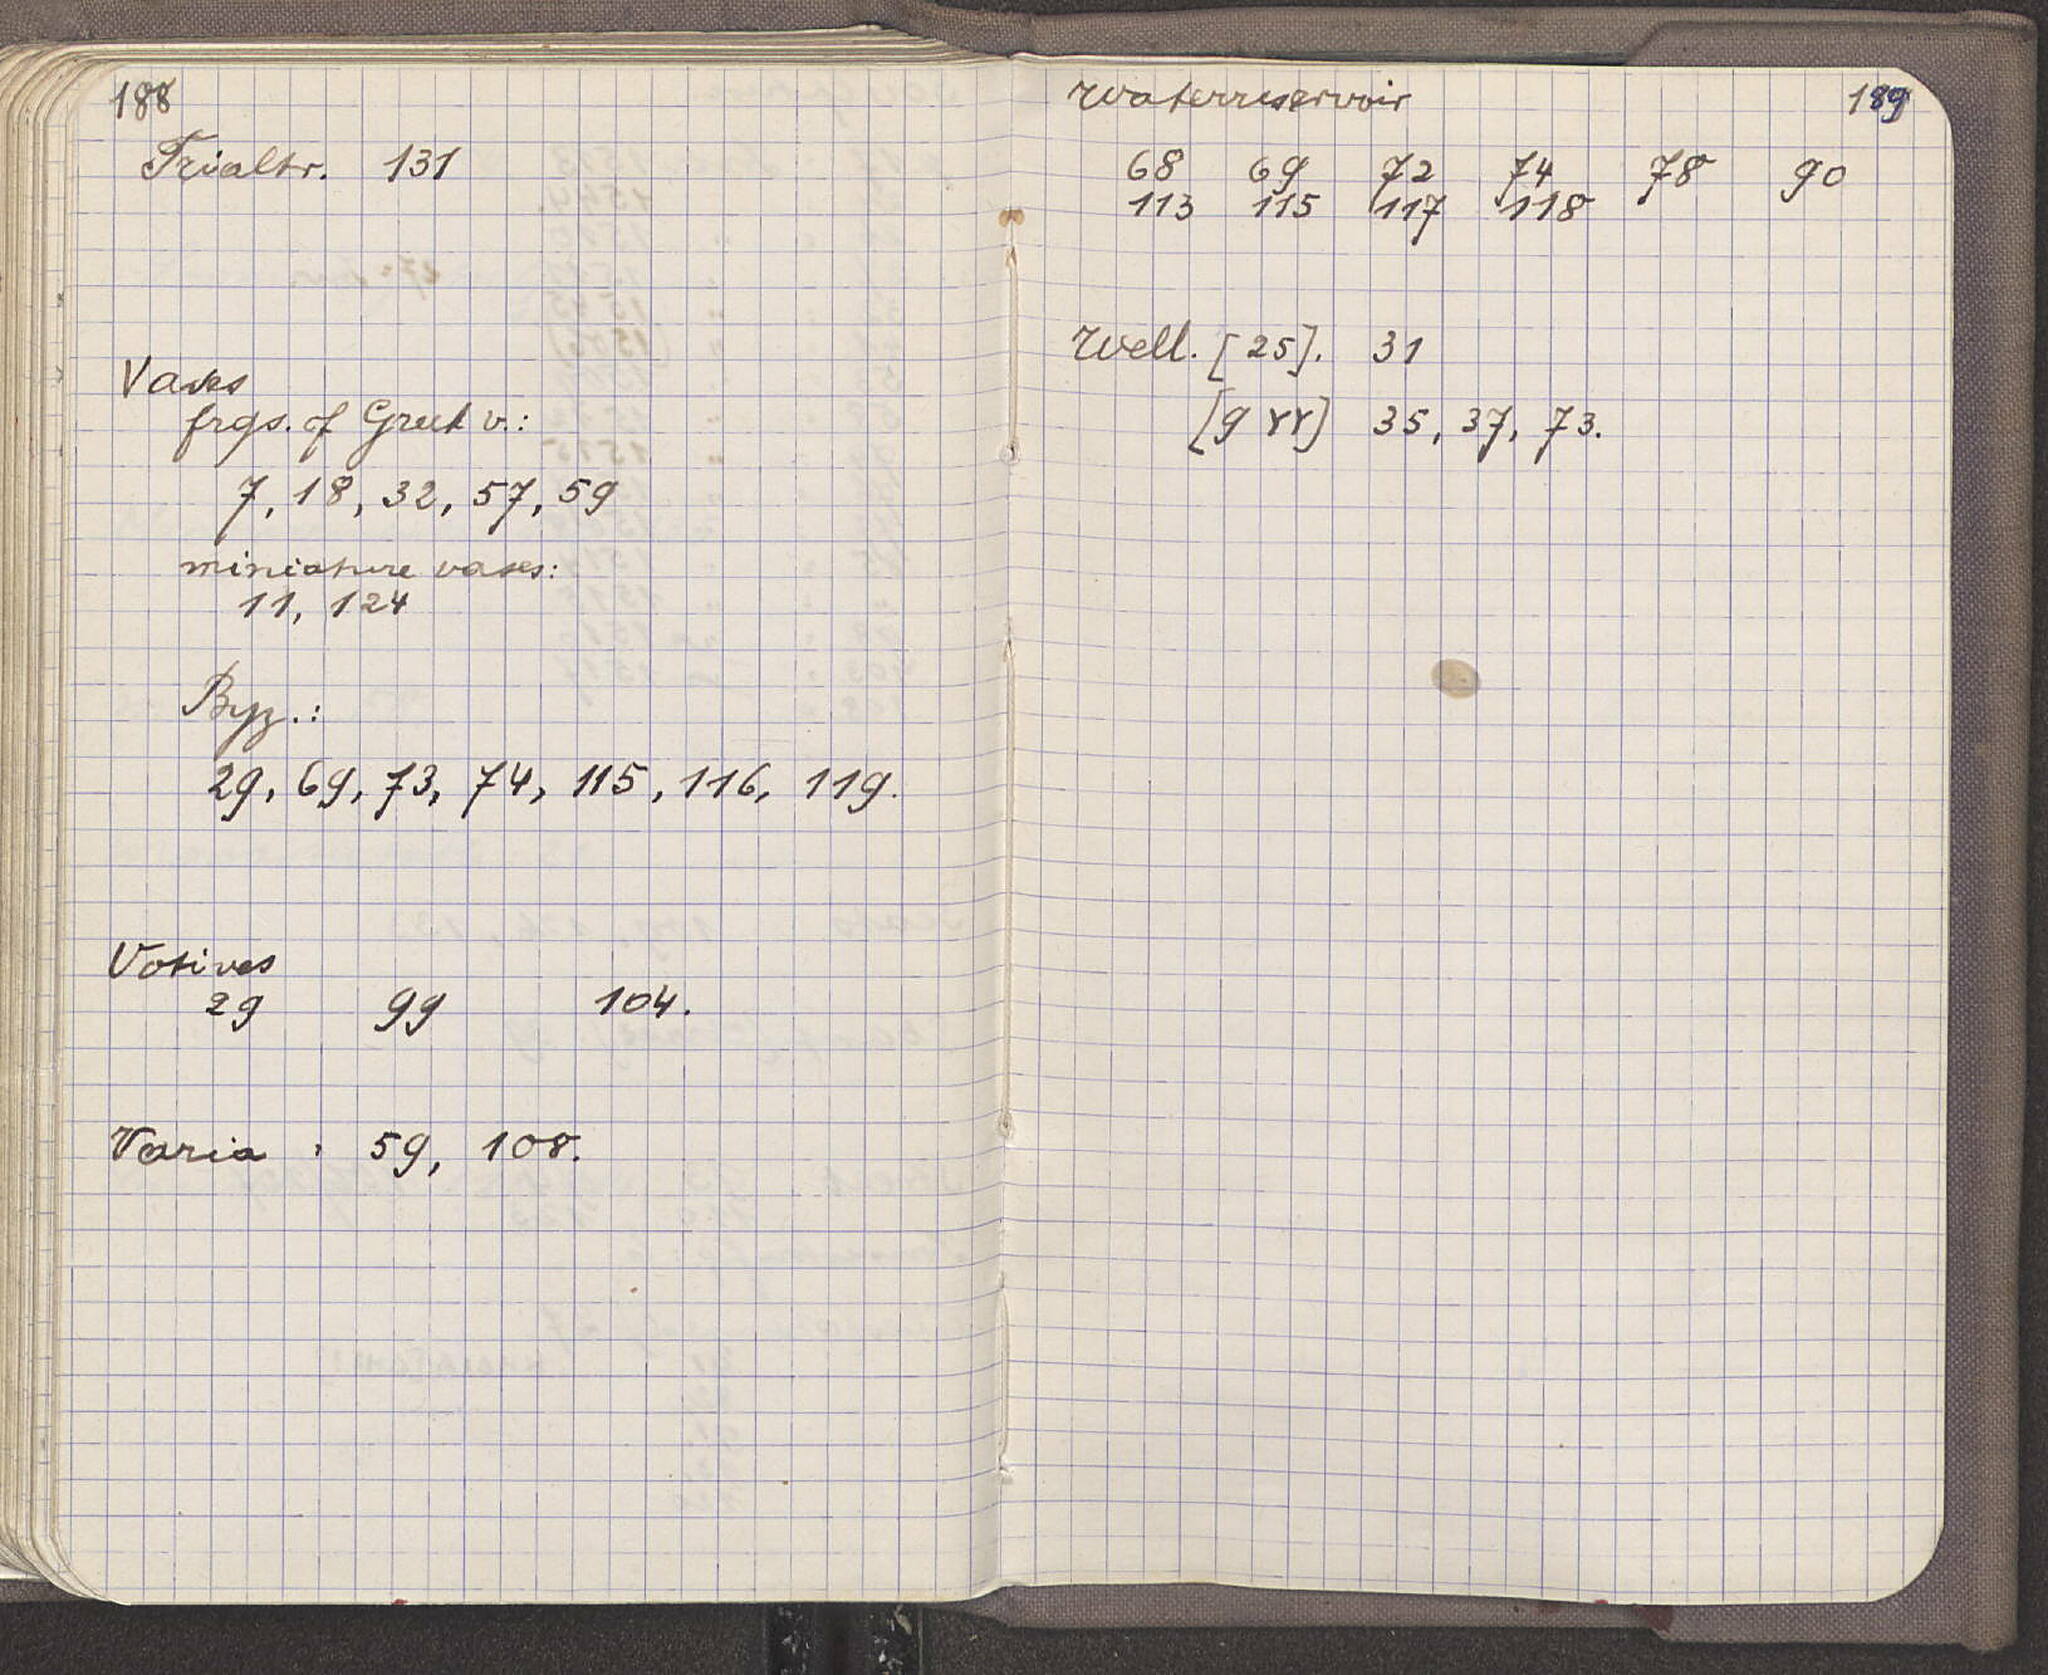 188
Trialtr. 131
Vases
frgs. of Greek v.:
7, 18, 32, 57, 59
miniature vases:
11, 124
Byz.:
29, 69, 73, 74, 115, 116, 119.
Votives
29 99 104.
Varia : 59, 108.
189
Waterreservoir
68 69 72 74 78 90
113 115 117 118
Well. [25]. 31
[9 γγ] 35, 37, 73.